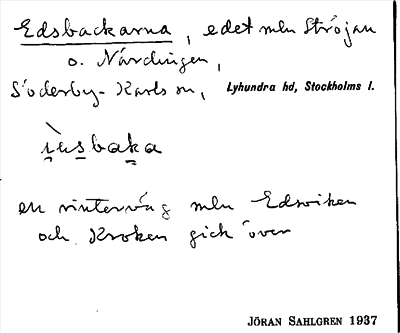 Edsbackarna, edet mln Ströjan
o. Närdingen,
Söderby-Karls sn, Lyhundra hd, Stockholms l.
en vinterväg mln Edsviken
och Kroken gick över
JÖRAN SAHLGREN 1937